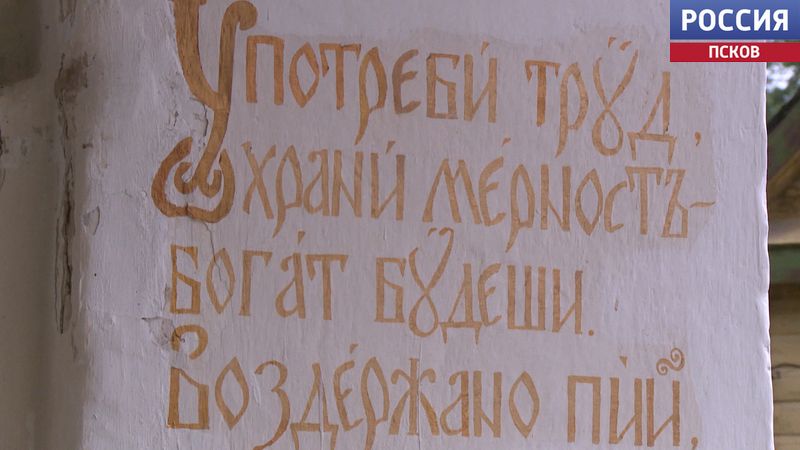 РОССИЯ
ПСКОВ
Употреби́ трꙋ́д,
храни́ ме́рностъ-
бога́т бꙋ́деши.
Возде́ржано пі́й,